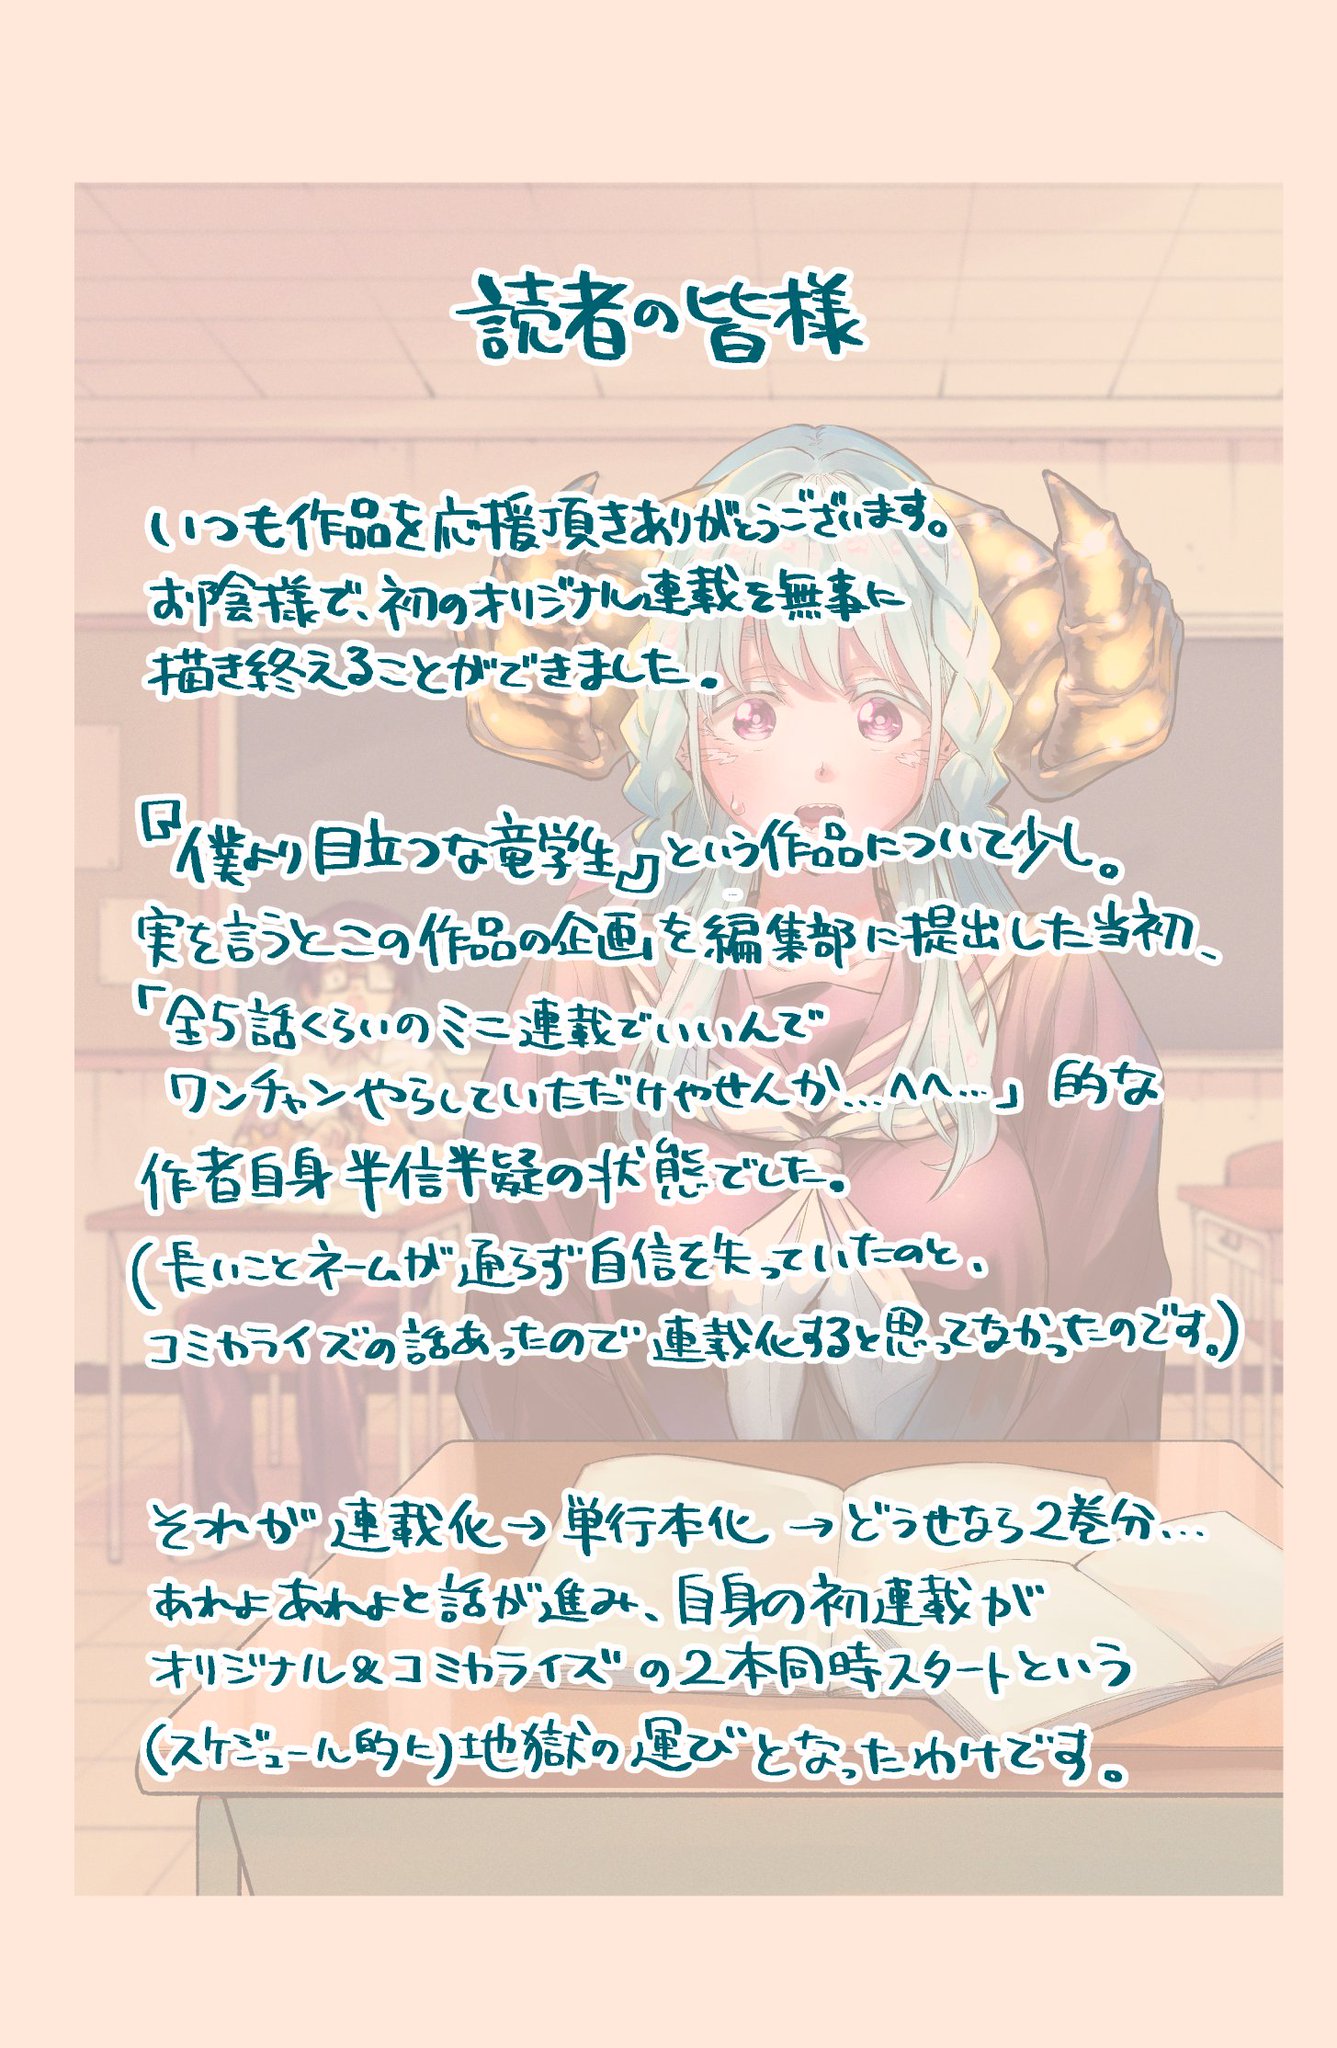 読者の皆様
いつも作品を応援頂きありがとうございます。
お陰様で、初のオリジナル連載を無事に
描き終えることができました。
『僕より目立つな竜学生』という作品について少し。
実を言うとこの作品の企画を編集部に提出した当初、
「全5話くらいのミニ連載でいいんで
ワンチャンやらしていただけやせんか…^^…」的な
作者自身半信半疑の状態でした。
(長いことネームが通らず自信を失っていたのと、
コミカライズの話あったので連載化すると思ってなかったのです。)
それが連載化→単行本化→どうせなら2巻分…
あれよあれよと話が進み、自身の初連載が
オリジナル&コミカライズの2本同時スタートという
(スケジュール的に)地獄の運びとなったわけです。